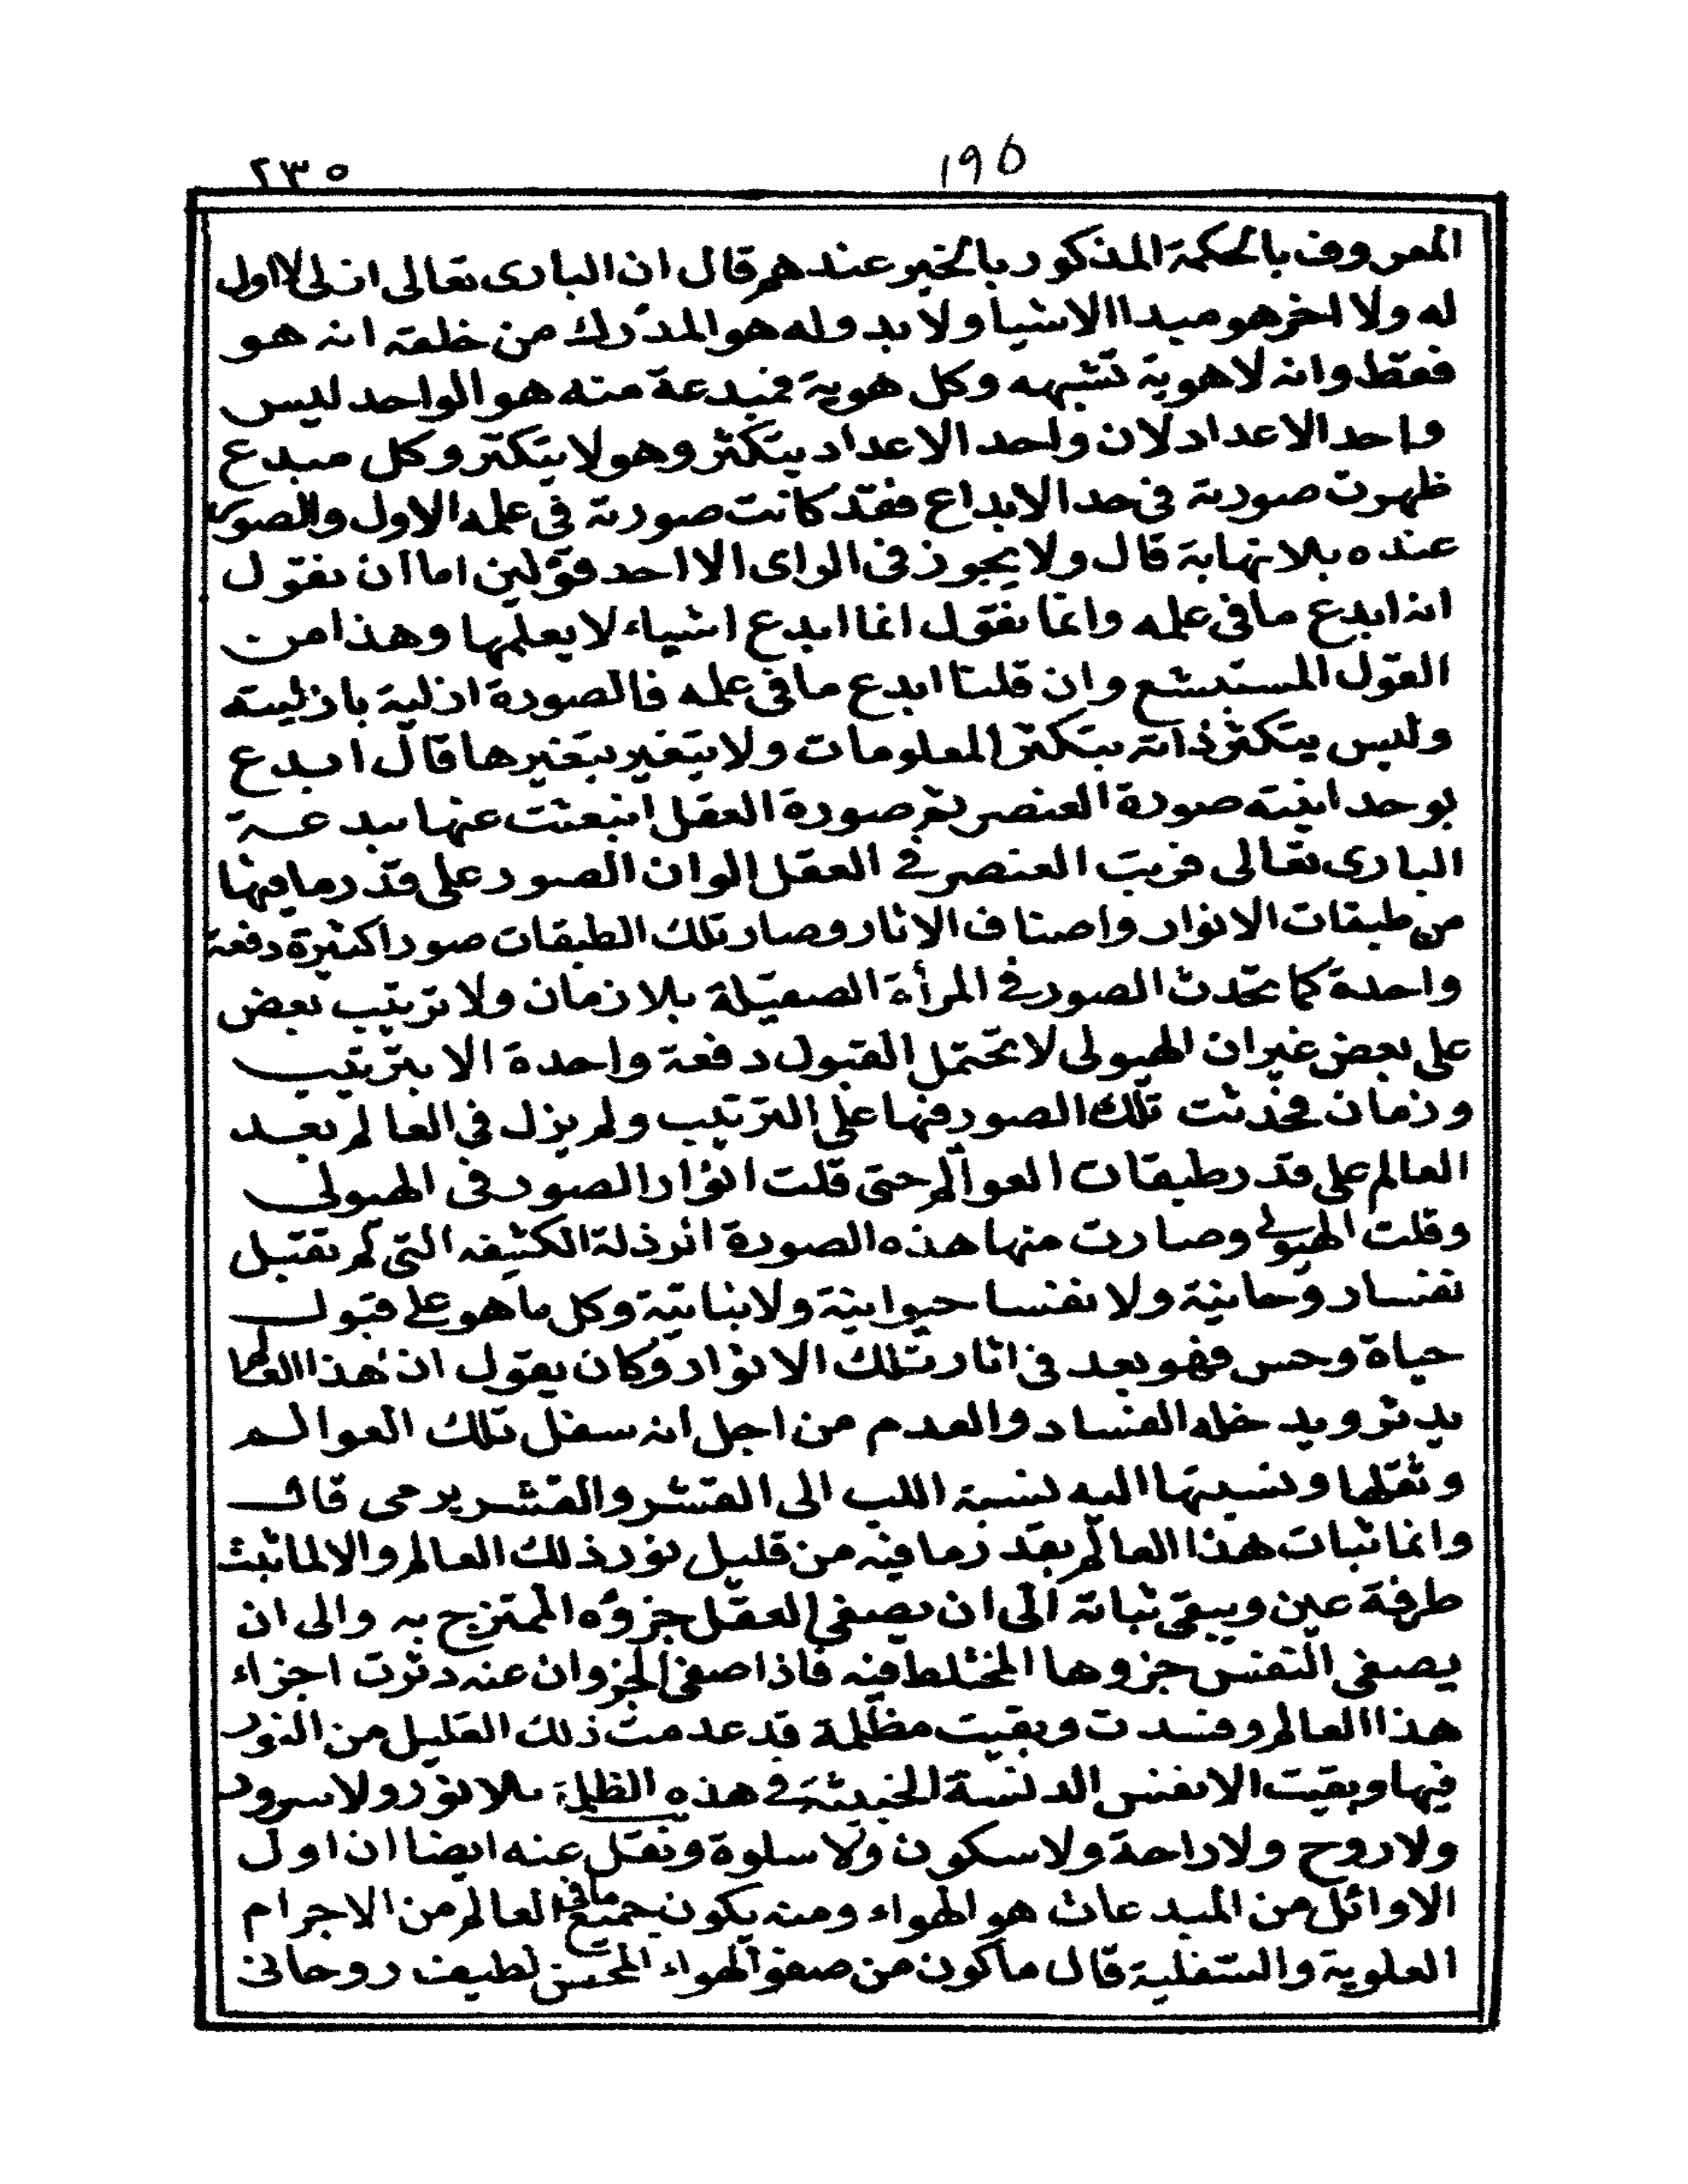 ١٩٥ ٢٣٥
المعروف بالحكمة المذكور بالخير عندهم قال ان البارى تعالى ازلى لا اول
له ولا اخر هو مبدا الاشيا ولا بدو له هو المدرك من خلقه انه هو
فقط وانه لا هوية تشبهه وكل هوية فمبدعة منه هو الواحد ليس
واحد الاعداد لان واحد الاعداد يتكثر وهو لا يتكثر وكل مبدع
ظهرت صورته فى حد الابداع فقد كانت صورته فى علمه الاول والصور
عنده بلا نهاية قال ولا يجوز فى الراى الا احد قولين اما ان نقول
انه ابدع ما فى علمه وانما نقول انما ابدع اشياء لا يعلمها وهذا من
القول المستبشع وان قلنا ابدع ما فى علمه فالصورة ازلية بازليته
وليس يتكثر ذاته بتكثر المعلومات ولا يتغير بتغيرها قال ابدع
بوحدانيته صورة العنصر ثم صورة العقل انبعثت عنها ببدعة
البارى تعالى فرتب العنصر فى العقل الوان الصور على قدر ما فيها
من طبقات الانوار واصناف الاثار وصار تلك الطبقات صورا كثيرة دفعة
واحدة كما تحدث الصور فى المرأة الصقيلة بلا زمان ولا ترتيب بعض
على بعض غير ان الهيولى لا تحتمل القبول دفعة واحدة الا بترتيب
وزمان فحدثت تلك الصور فيها على الترتيب ولم يزل فى العالم بعد
العالم على قدر طبقات العوالم حتى قلت انوار الصور فى الهيولى
وقلت الهيولى وصارت منها هذه الصورة الرذلة الكثيفه التى لم تقبل
نفسا روحانية ولا نفسا حيوانية ولا بناتية وكل ما هو على قبول
حياة وحس فهو بعد فى اثار تلك الانوار وكان يقول ان هذا العالم
يدثر ويدخله الفساد والعدم من اجل انه سفل تلك العوالم
وثقلها ونسبتها اليه نسبة اللب الى القشر والقشر يرمى قال
وانما ثبات هذا العالم بقدر ما فيه من قليل نور ذلك العالم والا لما ثبت
طرفة عين ويبقى ثباته الى ان يصفى العقل جزوه الممتزج به والى ان
يصفى النفس جزوها المختلط فيه فاذا صفى الجزوان عنه دثرت اجزاء
هذا العالم وفسدت وبقيت مظلمة قد عدمت ذلك القليل من النور
فيها وبقيت الانفس الدنسة الخبيثة فى هذه الظلمة بلا نور ولا سرور
ولا روح ولا راحة ولا سكون ولا سلوة ونقل عنه ايضا ان اول
الاوائل من المبدعات هو الهواء ومنه يكون جميع ما فى العالم من الاجرام
العلوية والسفلية قال ما كون من صفو الهواء المحسن لطيف روحانى